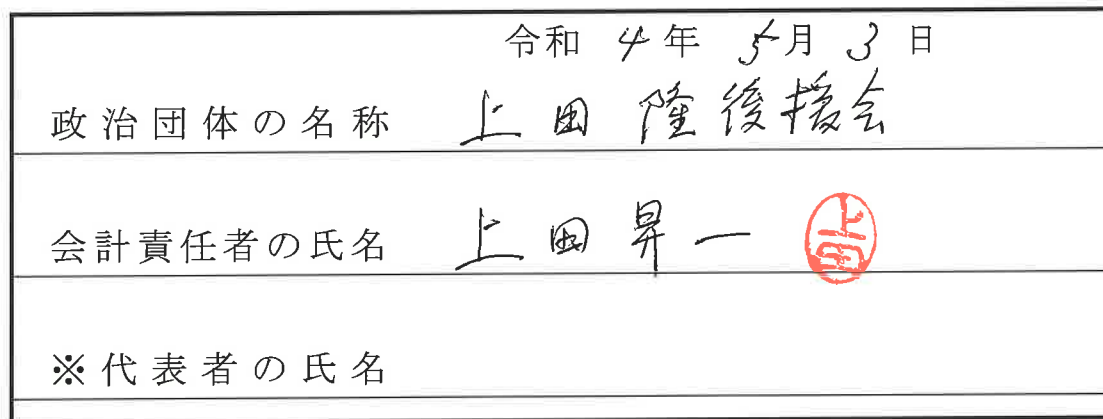 令和 4年 5月 3日
政治団体の名称 上田 隆後援会
会計責任者の氏名 上田昇一 上田
※代表者の氏名